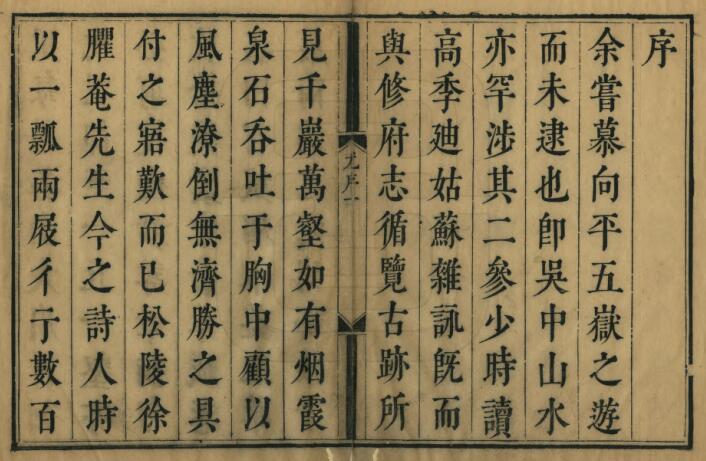 序
余嘗慕向平五嶽之遊
而未逮也卽吳中山水
亦罕涉其二參少時讀
高季廸姑蘇雜詠旣而
與修府志循覽古跡所
尤序一
見千巖萬壑如有烟霞
泉石呑吐于胸中顧以
風塵潦倒無濟勝之具
付之寤歎而已松陵徐
臞菴先生今之詩人時
以一瓢兩屐彳亍數百